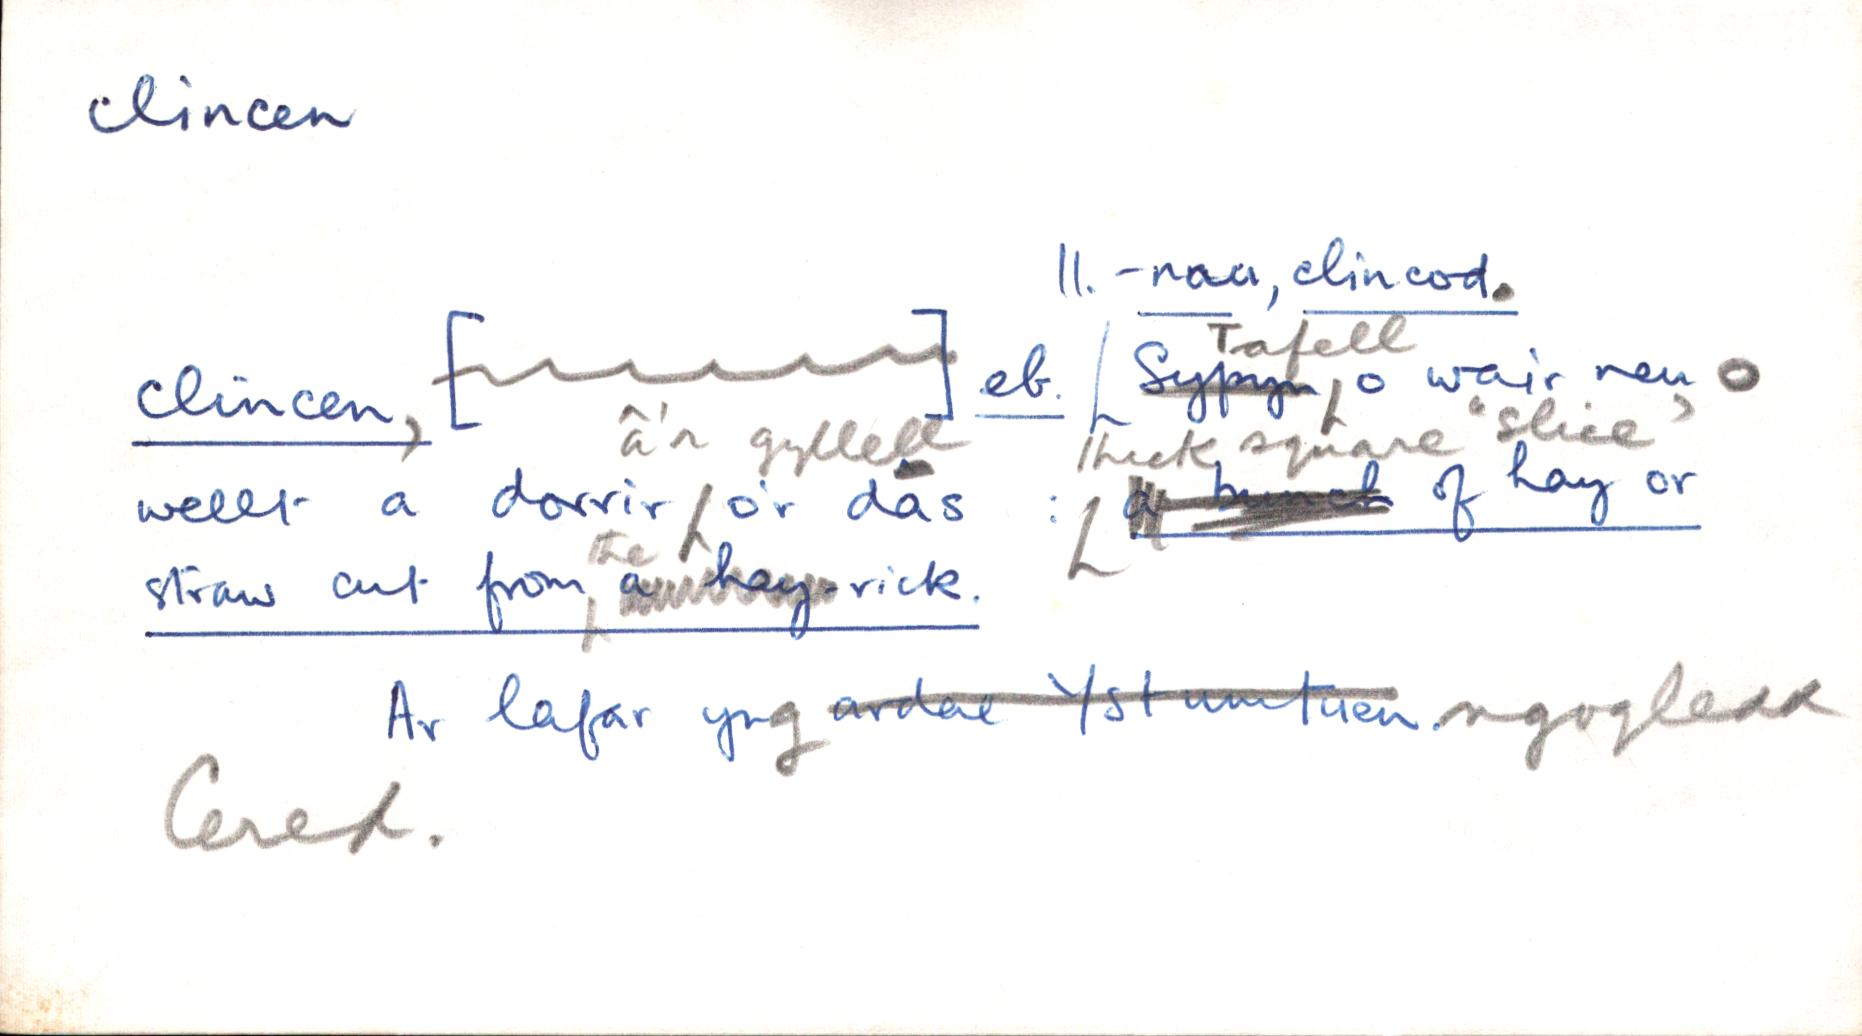 clincen
ll. -nau, clincod.
Tafell
clincen, [ ] eb. Sypyn o wair neu o
â'r gyllell thick square "slice"
wellt a dorrir o'r das : a bunch of hay or
the
straw cut from a hay-rick.
Ar lafar yng ardal Ystumtuen. ngogledd
Cered.